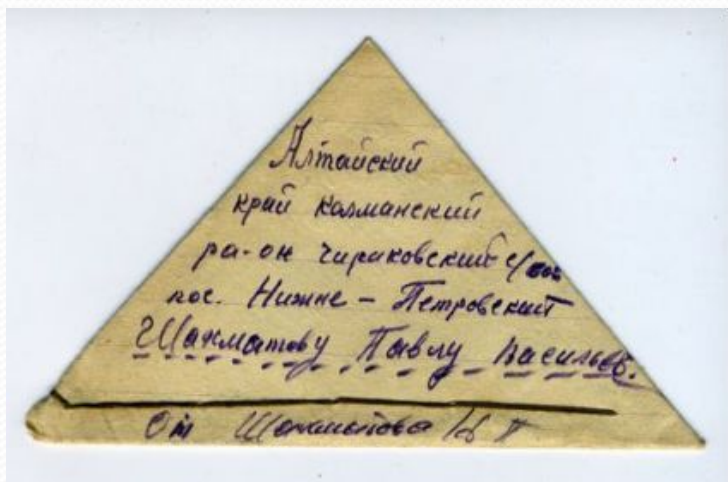 Алтайский
край Калманский
ра-он чириковский с/сов
пос. Нижне-Петровский
Шахматову Павлу Васильев.
От Шахматова